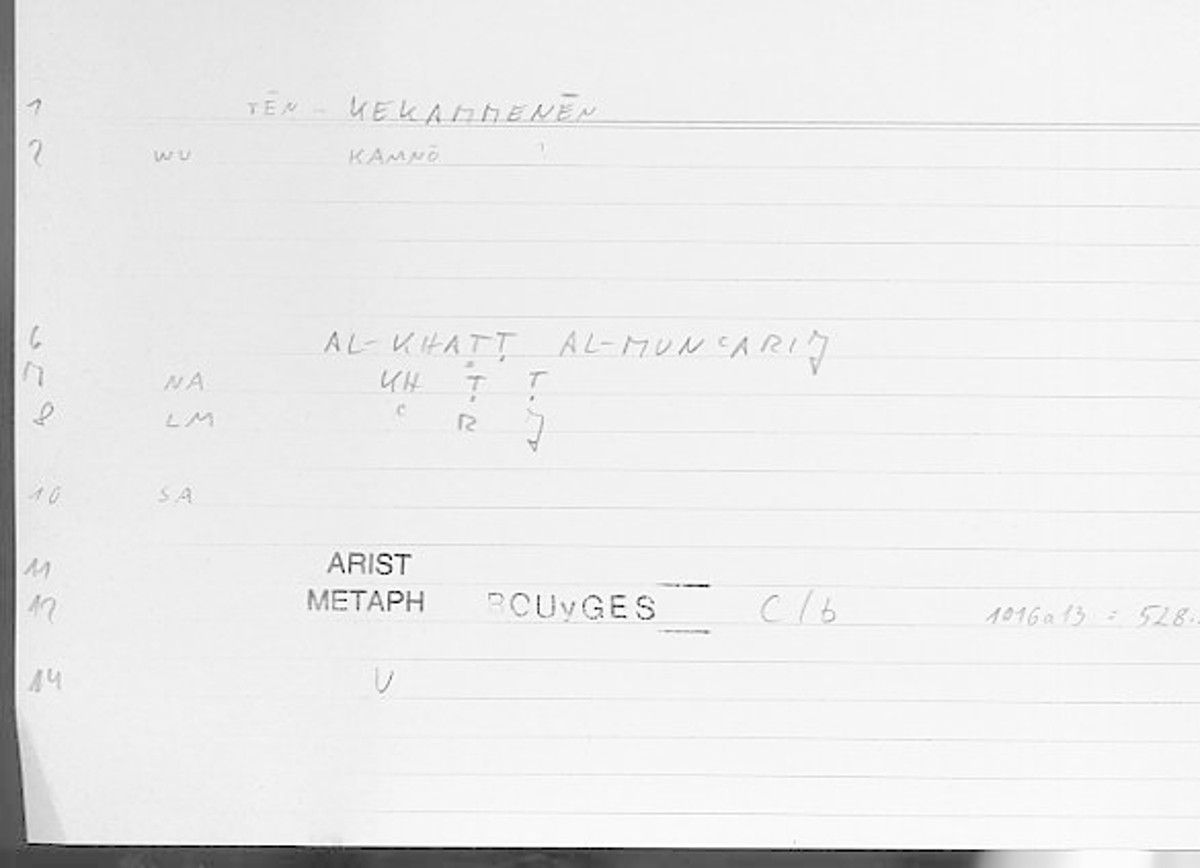 1 TĒN - KEKAMMENĒN
2 WU KAMNŌ
6 AL-KHAṬṬ AL-MUNʿARIJ
7 NA KH Ṭ Ṭ
8 LM ʿ R J
10 SA
11 ARIST
12 METAPH BOUyGES C/b 1016a13 : 528.
14 V